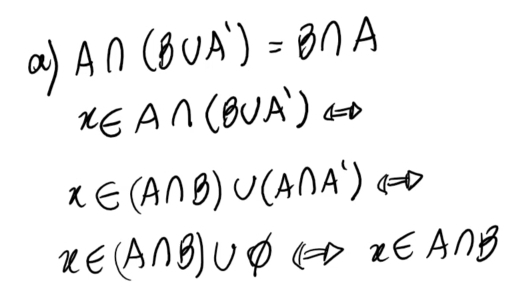 α) A ∩ (B ∪ A') = B ∩ A
x ∈ A ∩ (B ∪ A') ⇔
x ∈ (A ∩ B) ∪ (A ∩ A') ⇔
x ∈ (A ∩ B) ∪ ∅ ⇔ x ∈ A ∩ B